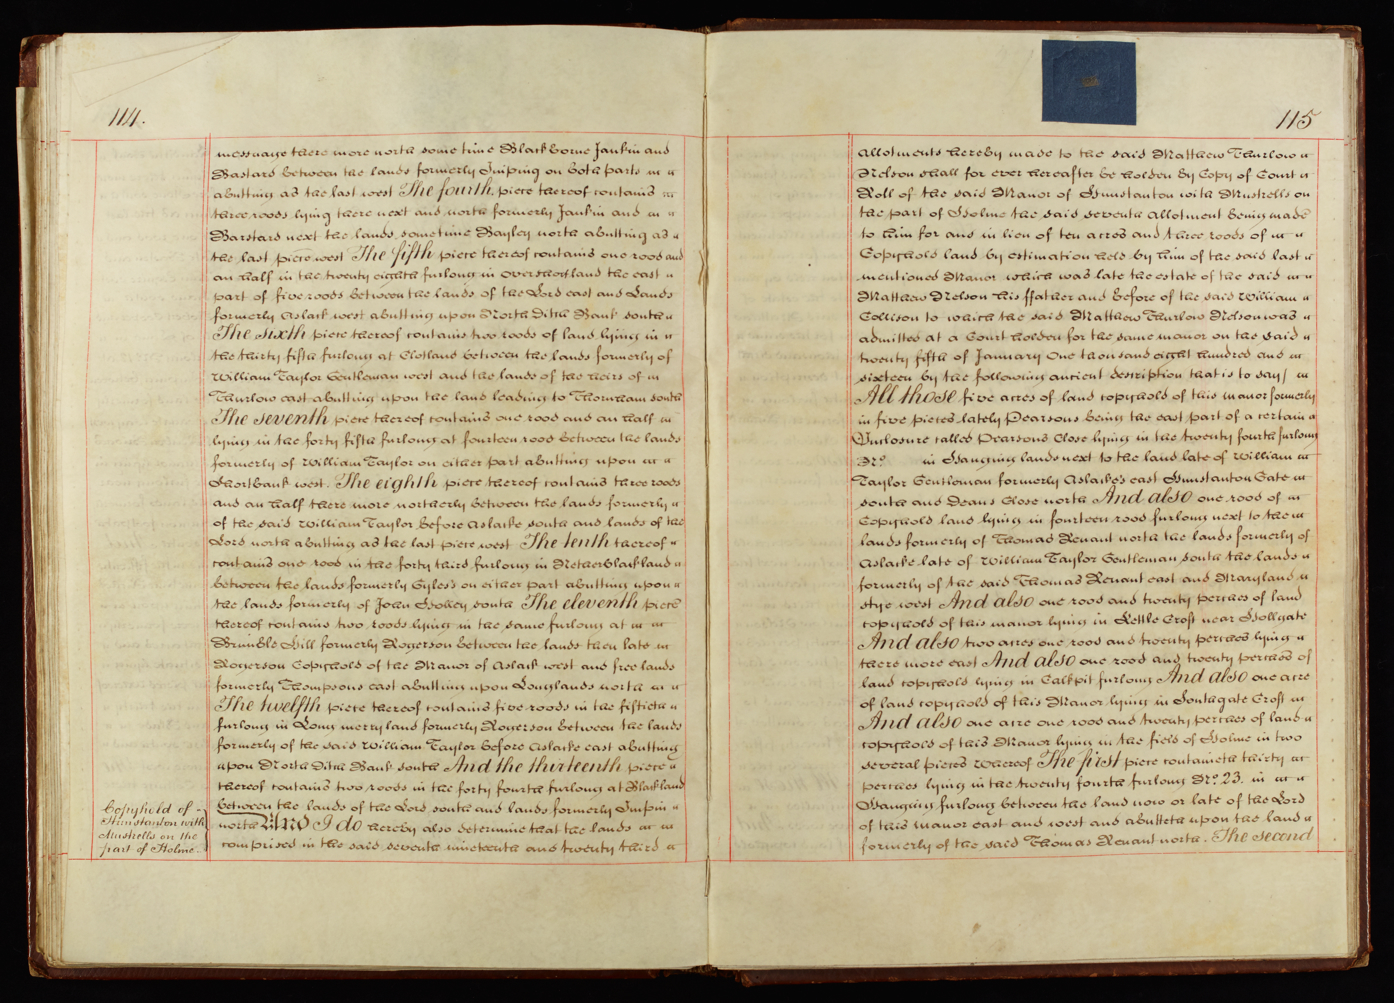 114.
messuage there more north some time Blackborne Jankin and
Bastard between the lands formerly Sniping on both parts
abutting as the last west The fourth piece thereof contains
three roods lying there next and north formerly Jankin and
Barstard next the lands sometime Bayley north abutting as
the last piece west The fifth piece thereof contains one rood and
an half in the twenty eighth furlong in the east
part of five roods between the lands of the Lord east and Lands
formerly Aslack west abutting upon North Ditch Bank south
The sixth piece thereof contains two roods of land lying in
the thirty fifth furlong at Clotland between the lands formerly of
William Taylor Gentleman west and the lands of the heirs of
Thurlow east abutting upon the land leading to Thornham south
The seventh piece thereof contains one rood and an half
lying in the forty fifth furlong at fourteen rood between the lands
formerly of William Taylor on either part abutting upon
Shortbank west. The eighth piece thereof contains three roods
and an half there more northerly between the lands formerly
of the said William Taylor before Aslacke south and lands of the
Lord north abutting as the last piece west The tenth thereof
contains one rood in the forty third furlong in Netherblackland
between the lands formerly Gyles's on either part abutting upon
the lands formerly of John south The eleventh piece
thereof contains two roods lying in the same furlong at
Brimble Hill formerly Rogerson between the lands then late
Rogerson Copyhold of the Manor of Aslack west and free lands
formerly Thompsons east abutting upon Longlands north
The twelfth piece thereof contains five roods in the fiftieth
furlong in Long merryland formerly Rogerson between the lands
formerly of the said William Taylor before Aslacke east abutting
upon North Ditch Bank south And the thirteenth piece
thereof contains two roods in the forty fourth furlong at Blackland
between the lands of the Lord south and lands formerly Snipin
north And I do hereby also determine that the lands
comprised in the said seventh nineteenth and twenty third
Copyhold of
Hunstanton with
Mustrells on the
part of Holme.
115
Allotments hereby made to the said Matthew Thurlow
Nelson shall for ever hereafter be holden by Copy of Court
Roll of the said Manor of Hunstanton with Mustrells on
the part of Holme the said seventh Allotment being made
to him for and in lieu of ten acres and three roods of
Copyhold land by estimation held by him of the said last
mentioned Manor which was late the estate of the said
Matthew Nelson his ffather and before of the said William
Collison to which the said Matthew Thurlow Nelson was
admitted at a Court holden for the same manor on the said
twenty fifth of January One thousand eight hundred and
sixteen by the following ancient description that is to say/
All those five acres of land copyhold of this manor formerly
in five pieces lately Pearsons being the east part of a certain
Inclosure called Pearsons Close lying in the twenty fourth furlong
No. in Hanging lands next to the land late of William
Taylor Gentleman formerly Aslacke's east Hunstanton Gate
south and Deans Close north And also one rood of
Copyhold land lying in fourteen rood furlong next to the
lands formerly of Thomas Renaut north the lands formerly of
Aslacke late of William Taylor Gentleman south the lands
formerly of the said Thomas Renaut east and Maryland
stye west And also one rood and twenty perches of land
copyhold of this manor lying in Kettle Croft near Hollgate
And also two acres one rood and twenty perches lying
there more east And also one rood and twenty perches of
land copyhold lying in Calkpit furlong And also one acre
of land copyhold of this Manor lying in Southgate Croft
And also one acre one rood and twenty perches of land
copyhold of this Manor lying in the field of Holme in two
several pieces whereof The first piece containeth thirty
perches lying in the twenty fourth furlong No. 23. in
Hanging furlong between the land now or late of the Lord
of this manor east and west and abutteth upon the land
formerly of the said Thomas Renaut north. The second